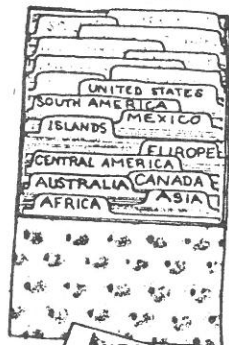 UNITED STATES
SOUTH AMERICA
MEXICO
ISLANDS
EUROPE
CENTRAL AMERICA
AUSTRALIA
CANADA
ASIA
AFRICA